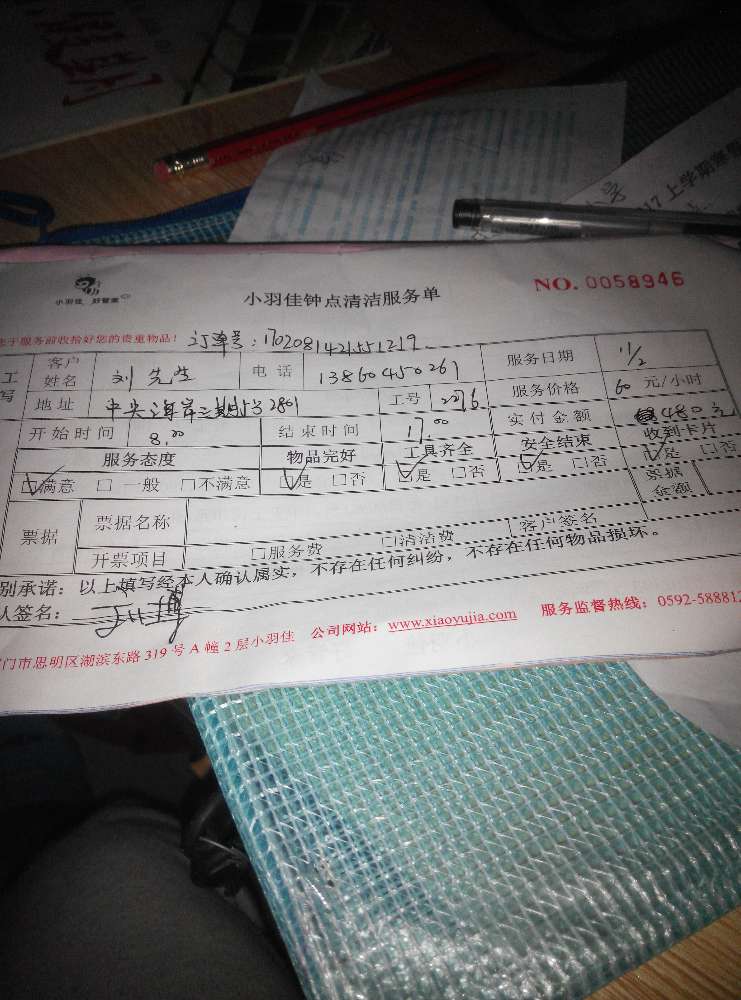 小羽佳 好管家
小羽佳钟点清洁服务单
NO. 0058946
于服务前收拾好您的贵重物品!
订单号:1702081421551219
工
写
客户
姓名
刘先生
电话
13860450261
服务日期
11/2
地址
中央海岸三期53 2801
工号
2276
服务价格
60 元/小时
开始时间
8.00
结束时间
17.00
实付金额
480元
服务态度
物品完好
工具齐全
安全结束
收到卡片
满意 □ 一般 □不满意
是 □否
是 □否
是 □否
是 □否
票据
票据名称
票据
金额
开票项目
□服务费 □清洁费
客户签名
别承诺:以上填写经本人确认属实,不存在任何纠纷,不存在任何物品损坏。
人签名:
门市思明区湖滨东路 319 号 A 幢 2 层小羽佳 公司网站:www.xiaoyujia.com 服务监督热线:0592-588812
17 上学期寒
小学